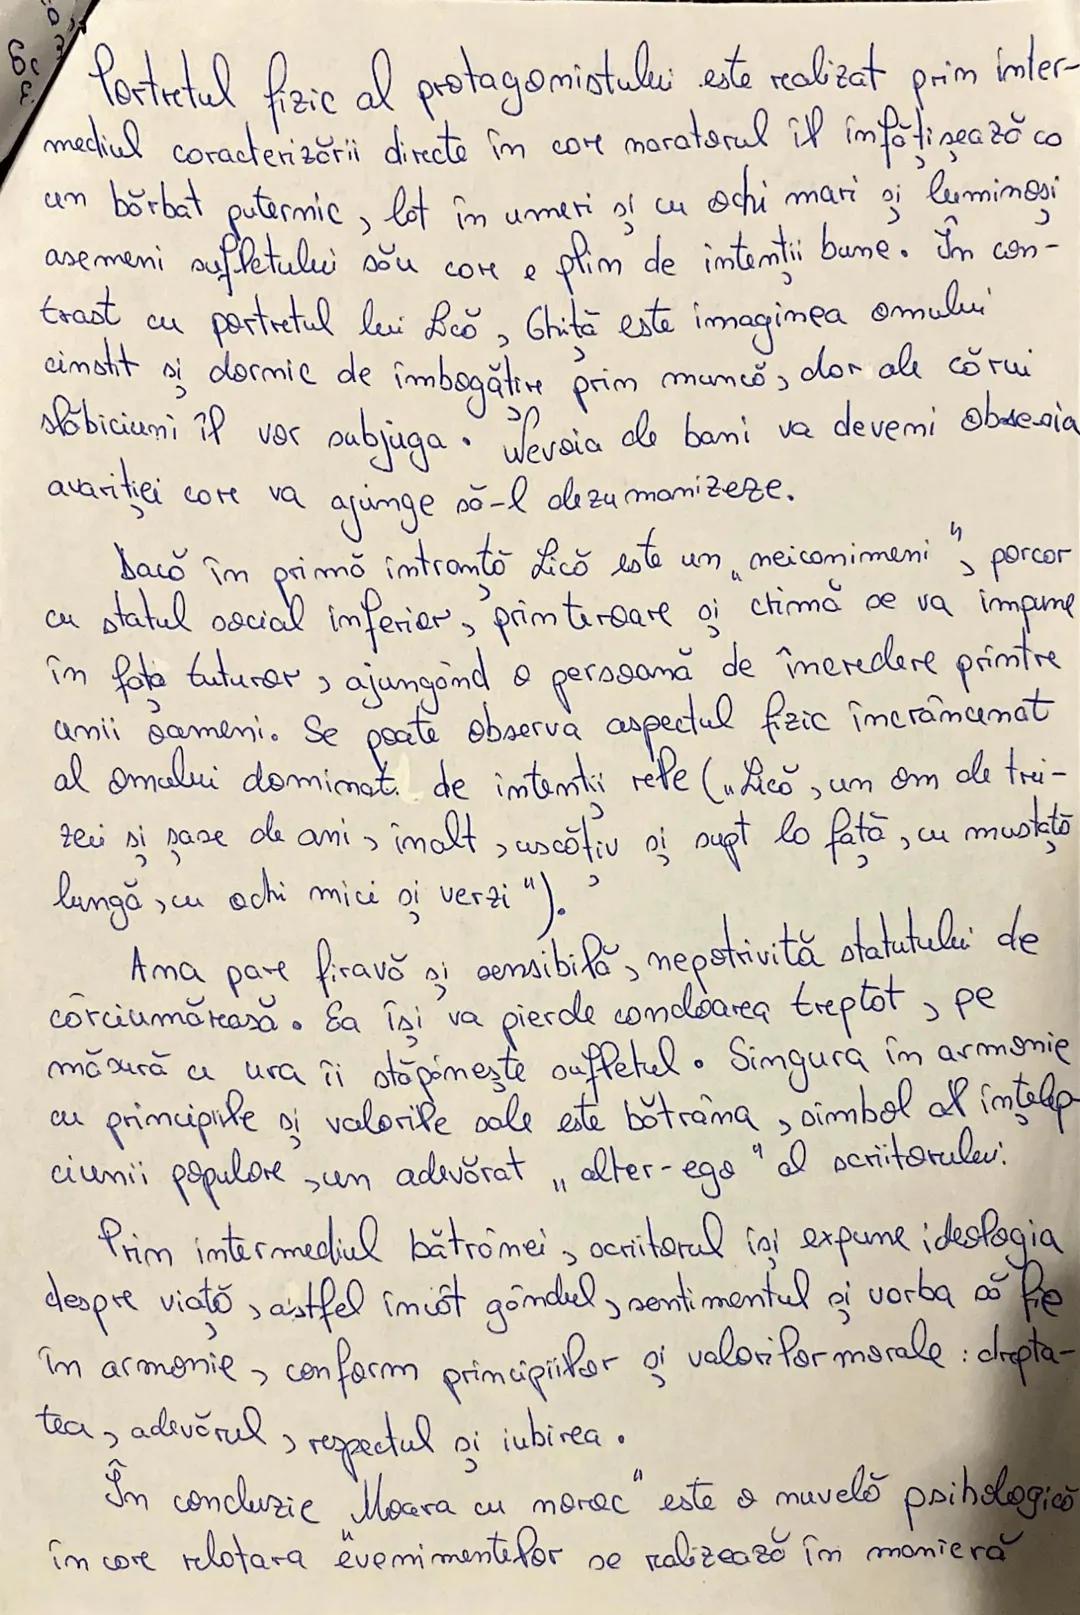 Portretul fizic al protagonistului este realizat prin inter-
mediul caracterizării directe în care naratorul îl înfățișează ca
un bărbat puternic, lat în umeri și cu ochi mari și luminoși
asemeni sufletului său care e plin de intenții bune. În con-
trast cu portretul lui Lică, Ghiță este imaginea omului
cinstit și dornic de îmbogățire prin muncă, dar ale cărui
slăbiciuni îl vor subjuga. Nevoia de bani va deveni obsesia
avariției care va ajunge să-l dezumanizeze.
Dacă în primă intranță Lică este un „neicanimeni", porcar
cu statul social inferior, prin teroare și crimă se va impune
în fața tuturor, ajungând o persoană de încredere printre
unii oameni. Se poate observa aspectul fizic încrâncenat
al omului dominat de intenții rele („Lică, un om de trei-
zeci și șase de ani, înalt, uscățiv și supt la față, cu mustață
lungă, cu ochi mici și verzi").
Ana pare firavă și sensibilă, nepotrivită statutului de
cârciumăreasă. Ea își va pierde candoarea treptat, pe
măsură ce ura îi stăpânește sufletul. Singura în armonie
cu principiile și valorile sale este bătrâna, simbol al înțelep-
ciunii populare, un adevărat „alter-ego" al scriitorului.
Prin intermediul bătrânei, scriitorul își expune ideologia
despre viață, astfel încât gândul, sentimentul și vorba să fie
în armonie, conform principiilor și valorilor morale: drepta-
tea, adevărul, respectul și iubirea.
În concluzie „Moara cu noroc" este o nuvelă psihologică
în care relatara evenimentelor se ralizează în manieră